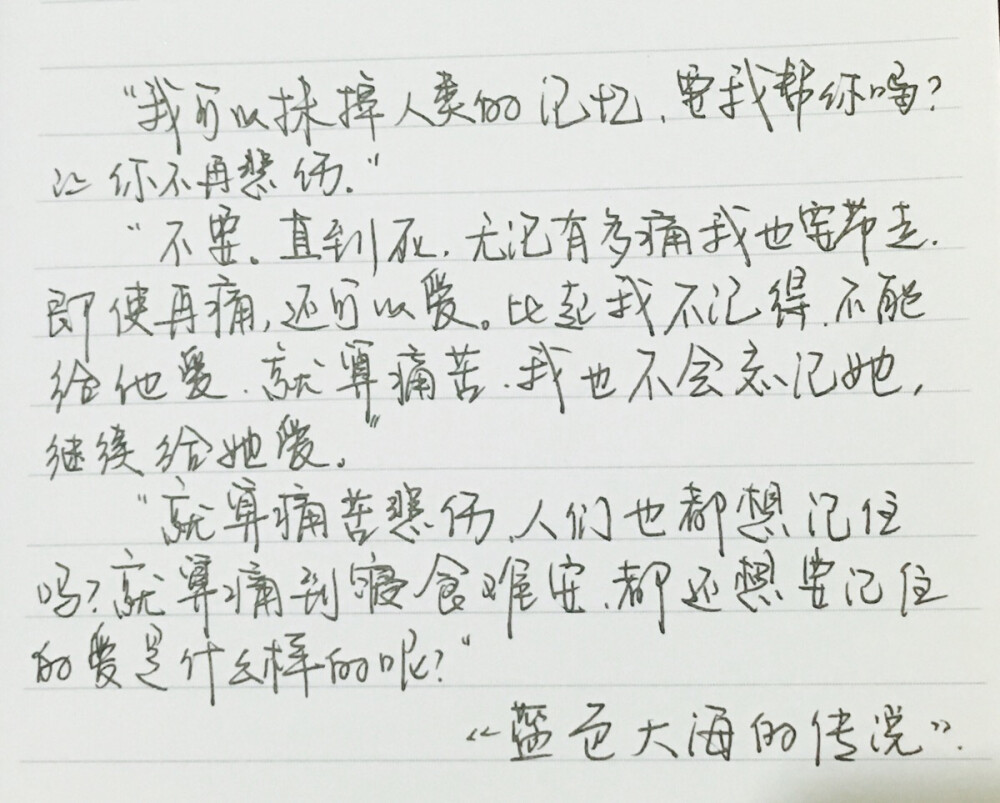 “我可以抹掉人类的记忆，要我帮你吗？
让你不再悲伤。”
“不要。直到死，无记有多痛我也要带走，
即使再痛，还可以爱。比起我不记得，不能
给他爱，就算痛苦，我也不会忘记她，
继续给她爱。”
“就算痛苦悲伤，人们也都想记住
吗？就算痛到寝食难安，都还想要记住
的爱是什么样的呢？”
《蓝色大海的传说》.